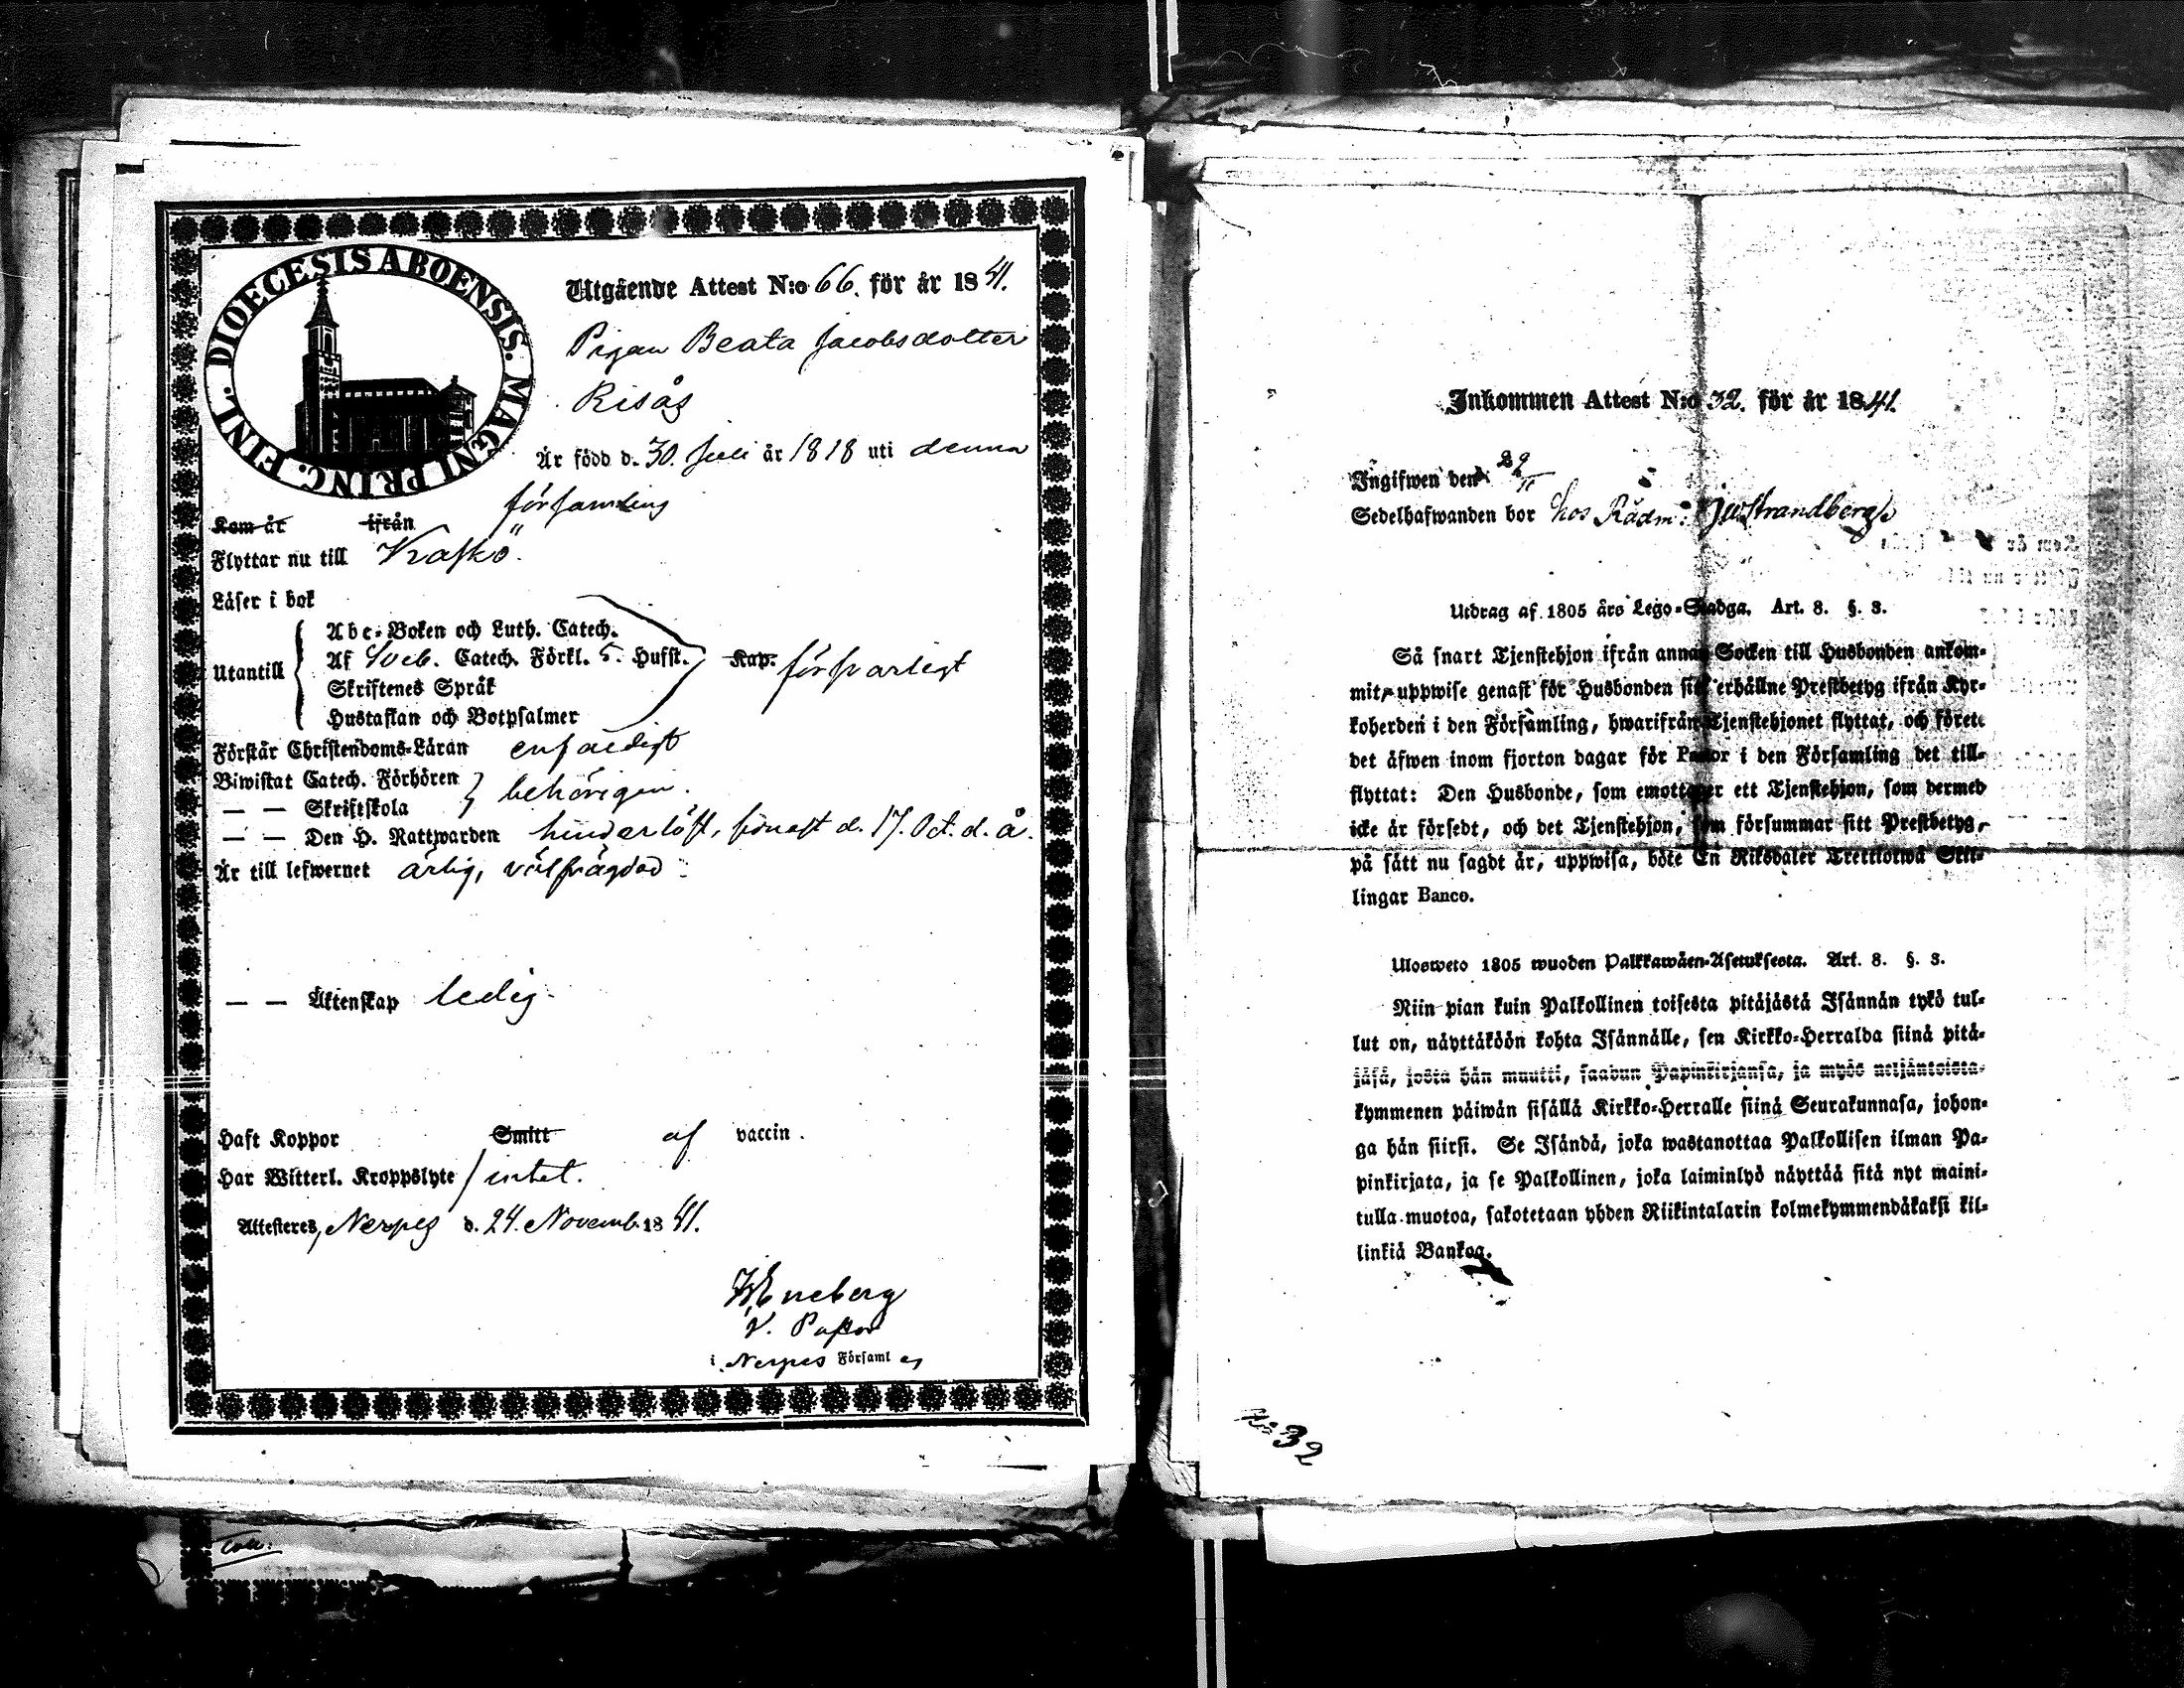 DIOECESIS ABOENSIS. MAGNI PRINC. FINL.
Utgående Attest N:o 66. för år 1841.
Pigan Beata Jacobsdotter
Risås
Är född d. 30. Juli år 1818 uti denna
församling
Kom år ifrån
Flyttar nu till Kaskö.
Läser i bok
Abc-Boken och Luth. Catech.
Utantill Af Sveb. Catech. Förkl. 5. Hufst. Kap. försvarligt
Skriftenes Språk
Hustaflan och Botpsalmer
Förstår Christendoms-Läran enfaldigt
Biwistat Catech. Förhören
— — Skriftskola behörigen.
— — Den H. Nattwarden hinderlöst, sidnast d. 17. Oct. d. å.
Är till lefwernet ärlig, välfrägdad
— — Äktenskap ledig.
Haft Koppor Smitt af vaccin.
Har Witterl. Kroppslyte intet.
Attesteres, Nerpes d. 24. Novemb. 1841.
Eneberg
V. Pastor
i Nerpes Församl
Inkommen Attest N:o 32. för år 1841.
Ingifwen den 29/11
Sedelhafwanden bor hos Rådm: Strandbergs
Utdrag af 1805 års Lego-Stadga. Art. 8. §. 3.
Så snart Tjenstehjon ifrån annan Socken till Husbonden ankom-
mit, uppwise genast för Husbonden sitt erhållne Prestbetyg ifrån Kyr-
koherden i den Församling, hwarifrån Tjenstehjonet flyttat, och förete
det äfwen inom fjorton dagar för Pastor i den Församling det till-
flyttat: Den Husbonde, som emottager ett Tjenstehjon, som dermed
icke är försedt, och det Tjenstehjon, som försummar sitt Prestbetyg,
på sätt nu sagdt är, uppwisa, böte En Riksdaler Trettiotwå Skil-
lingar Banco.
Uloswето 1805 wuoden Palkkawäen-Asetuksesta. Art. 8. §. 3.
Niin pian kuin Palkollinen toisesta pitäjästä Isännän tykö tul-
lut on, näyttäköön kohta Isännälle, sen Kirkko-Herralda siinä pitä-
jäsä, josta hän muutti, saadun Papinkirjansa, ja myös neljäntoista-
kymmenen päiwän sisällä Kirkko-Herralle siinä Seurakunnasa, johon-
ga hän siirsi. Se Isändä, joka wastanottaa Palkollisen ilman Pa-
pinkirjata, ja se Palkollinen, joka laiminlyö näyttää sitä nyt maini-
tulla muotoa, sakotetaan yhden Riikintalarin kolmekymmendäkaksi kil-
linkiä Bankoa.
No 32